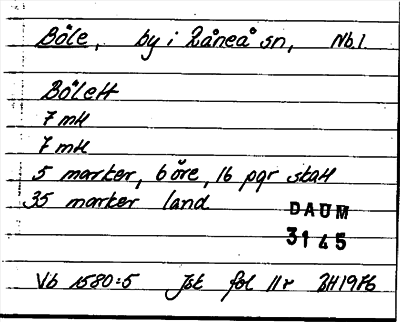 Böle, by i Råneå sn, Nb.l.
Bölett
7 mtt
7 mtt
5 marker, 6 öre, 16 pgr skatt
35 marker land
DAUM
3145
Vb 1580:5 Jbk fol 11r BH1976